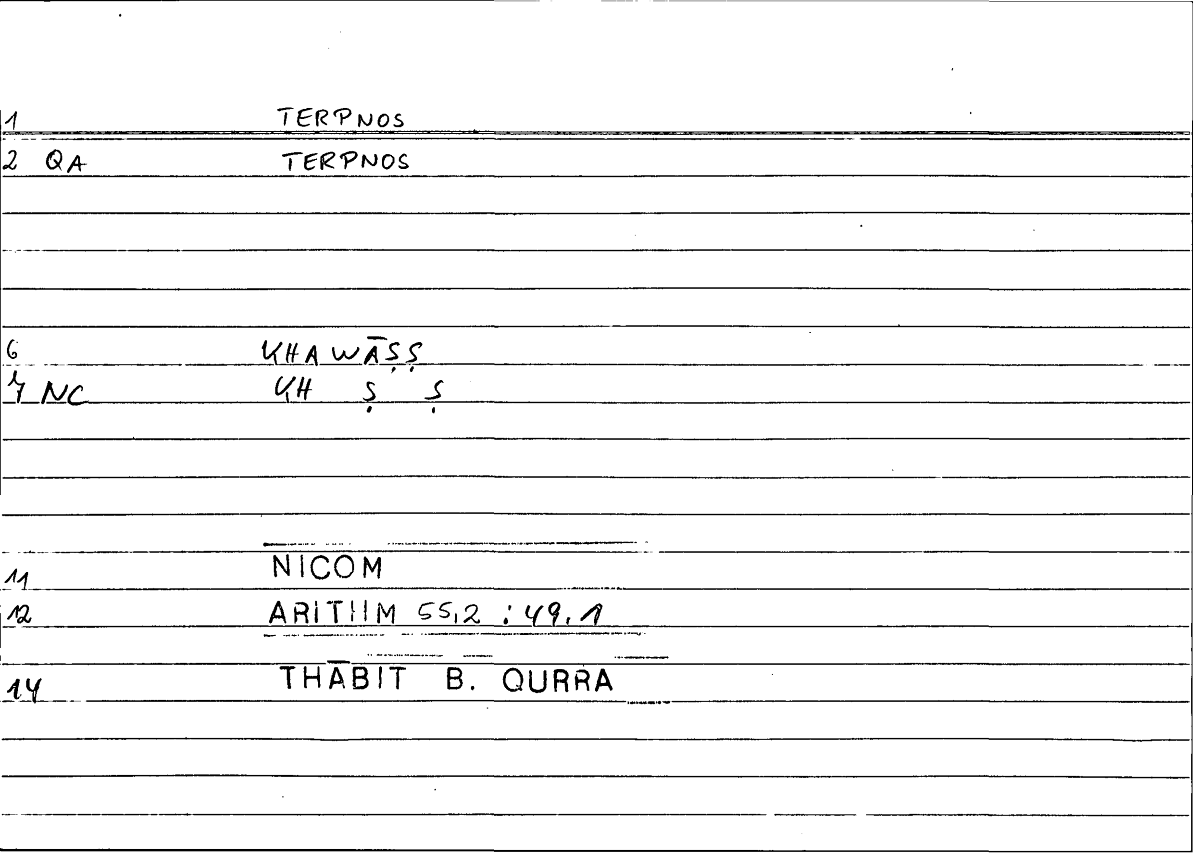 1 TERPNOS
2 QA TERPNOS
6 KHAWĀṢṢ
7 NC KH Ṣ Ṣ
11 NICOM
12 ARITHM 55,2 : 49,1
14 THĀBIT B. QURRA